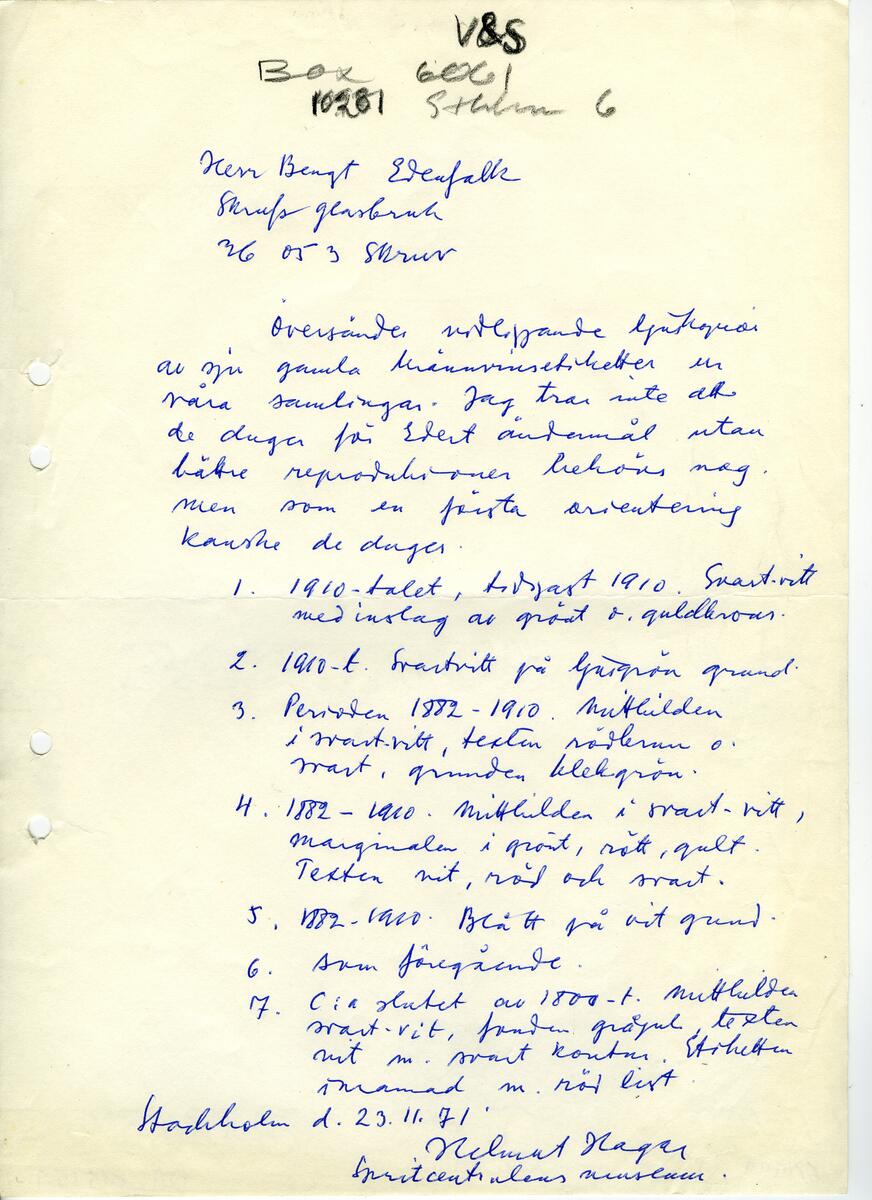 V&S
Box 6061
10281 Sthlm 6
Herr Bengt Edenfalk
Skrufs glasbruk
36 05 3 Skruv
Översändes vidliggande ljuskopior
av sju gamla brännvinsetiketter ur
våra samlingar. Jag tror inte att
de duger för Edert ändamål utan
bättre reproduktioner behövs nog.
men som en första orientering
kanske de duger.
1. 1910-talet, tidigast 1910. Svart-vitt
med inslag av grönt o. guldbrons.
2. 1910-t. Svartvitt på ljusgrön grund.
3. Perioden 1882-1910. Mittbilden
i svart-vitt, texten rödbrun o.
svart, grunden blekgrön.
4. 1882-1910. Mittbilden i svart-vitt,
marginalen i grönt, rött, gult.
Texten vit, röd och svart.
5. 1882-1910. Blått på vit grund.
6. som föregående.
7. C:a slutet av 1800-t. Mittbilden
svart-vit, fonden grågul, texten
vit m. svart kontur. Etiketten
inramad m. röd list.
Stockholm d. 23.11.71
Helmut Hagar
Spritcentralens museum.